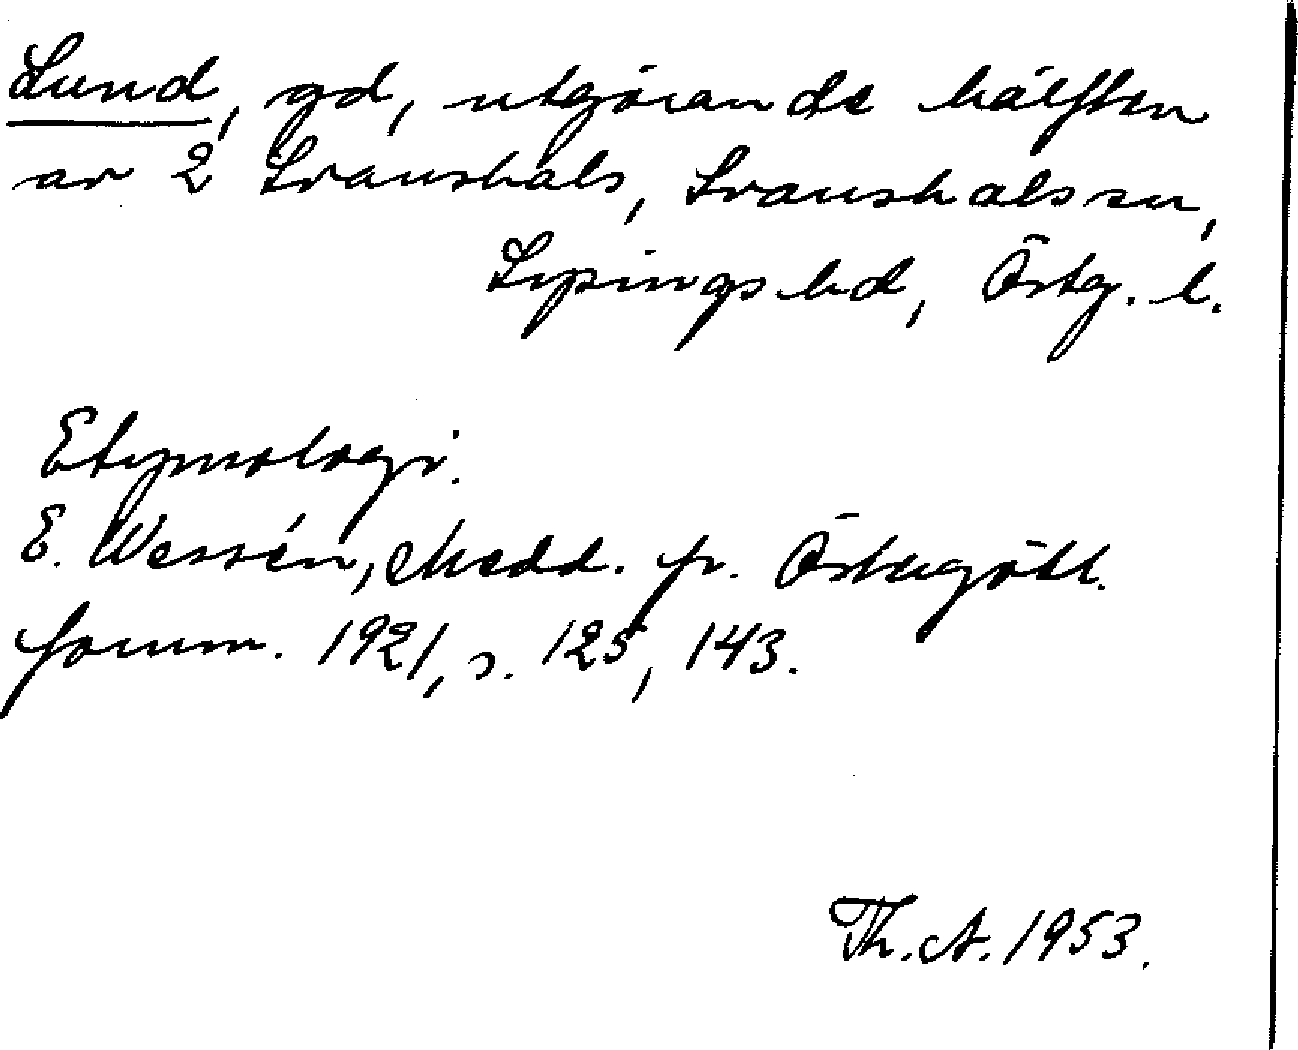 Lund, gd, utgörande hälften
av 2 Svanshals, Svanshals sn,
Lysings hd, Östg. l.
Etymologi.
E. Wessén, Medd. fr. Östergötl.
fornm. 1921, s. 125, 143.
Th. A. 1953.